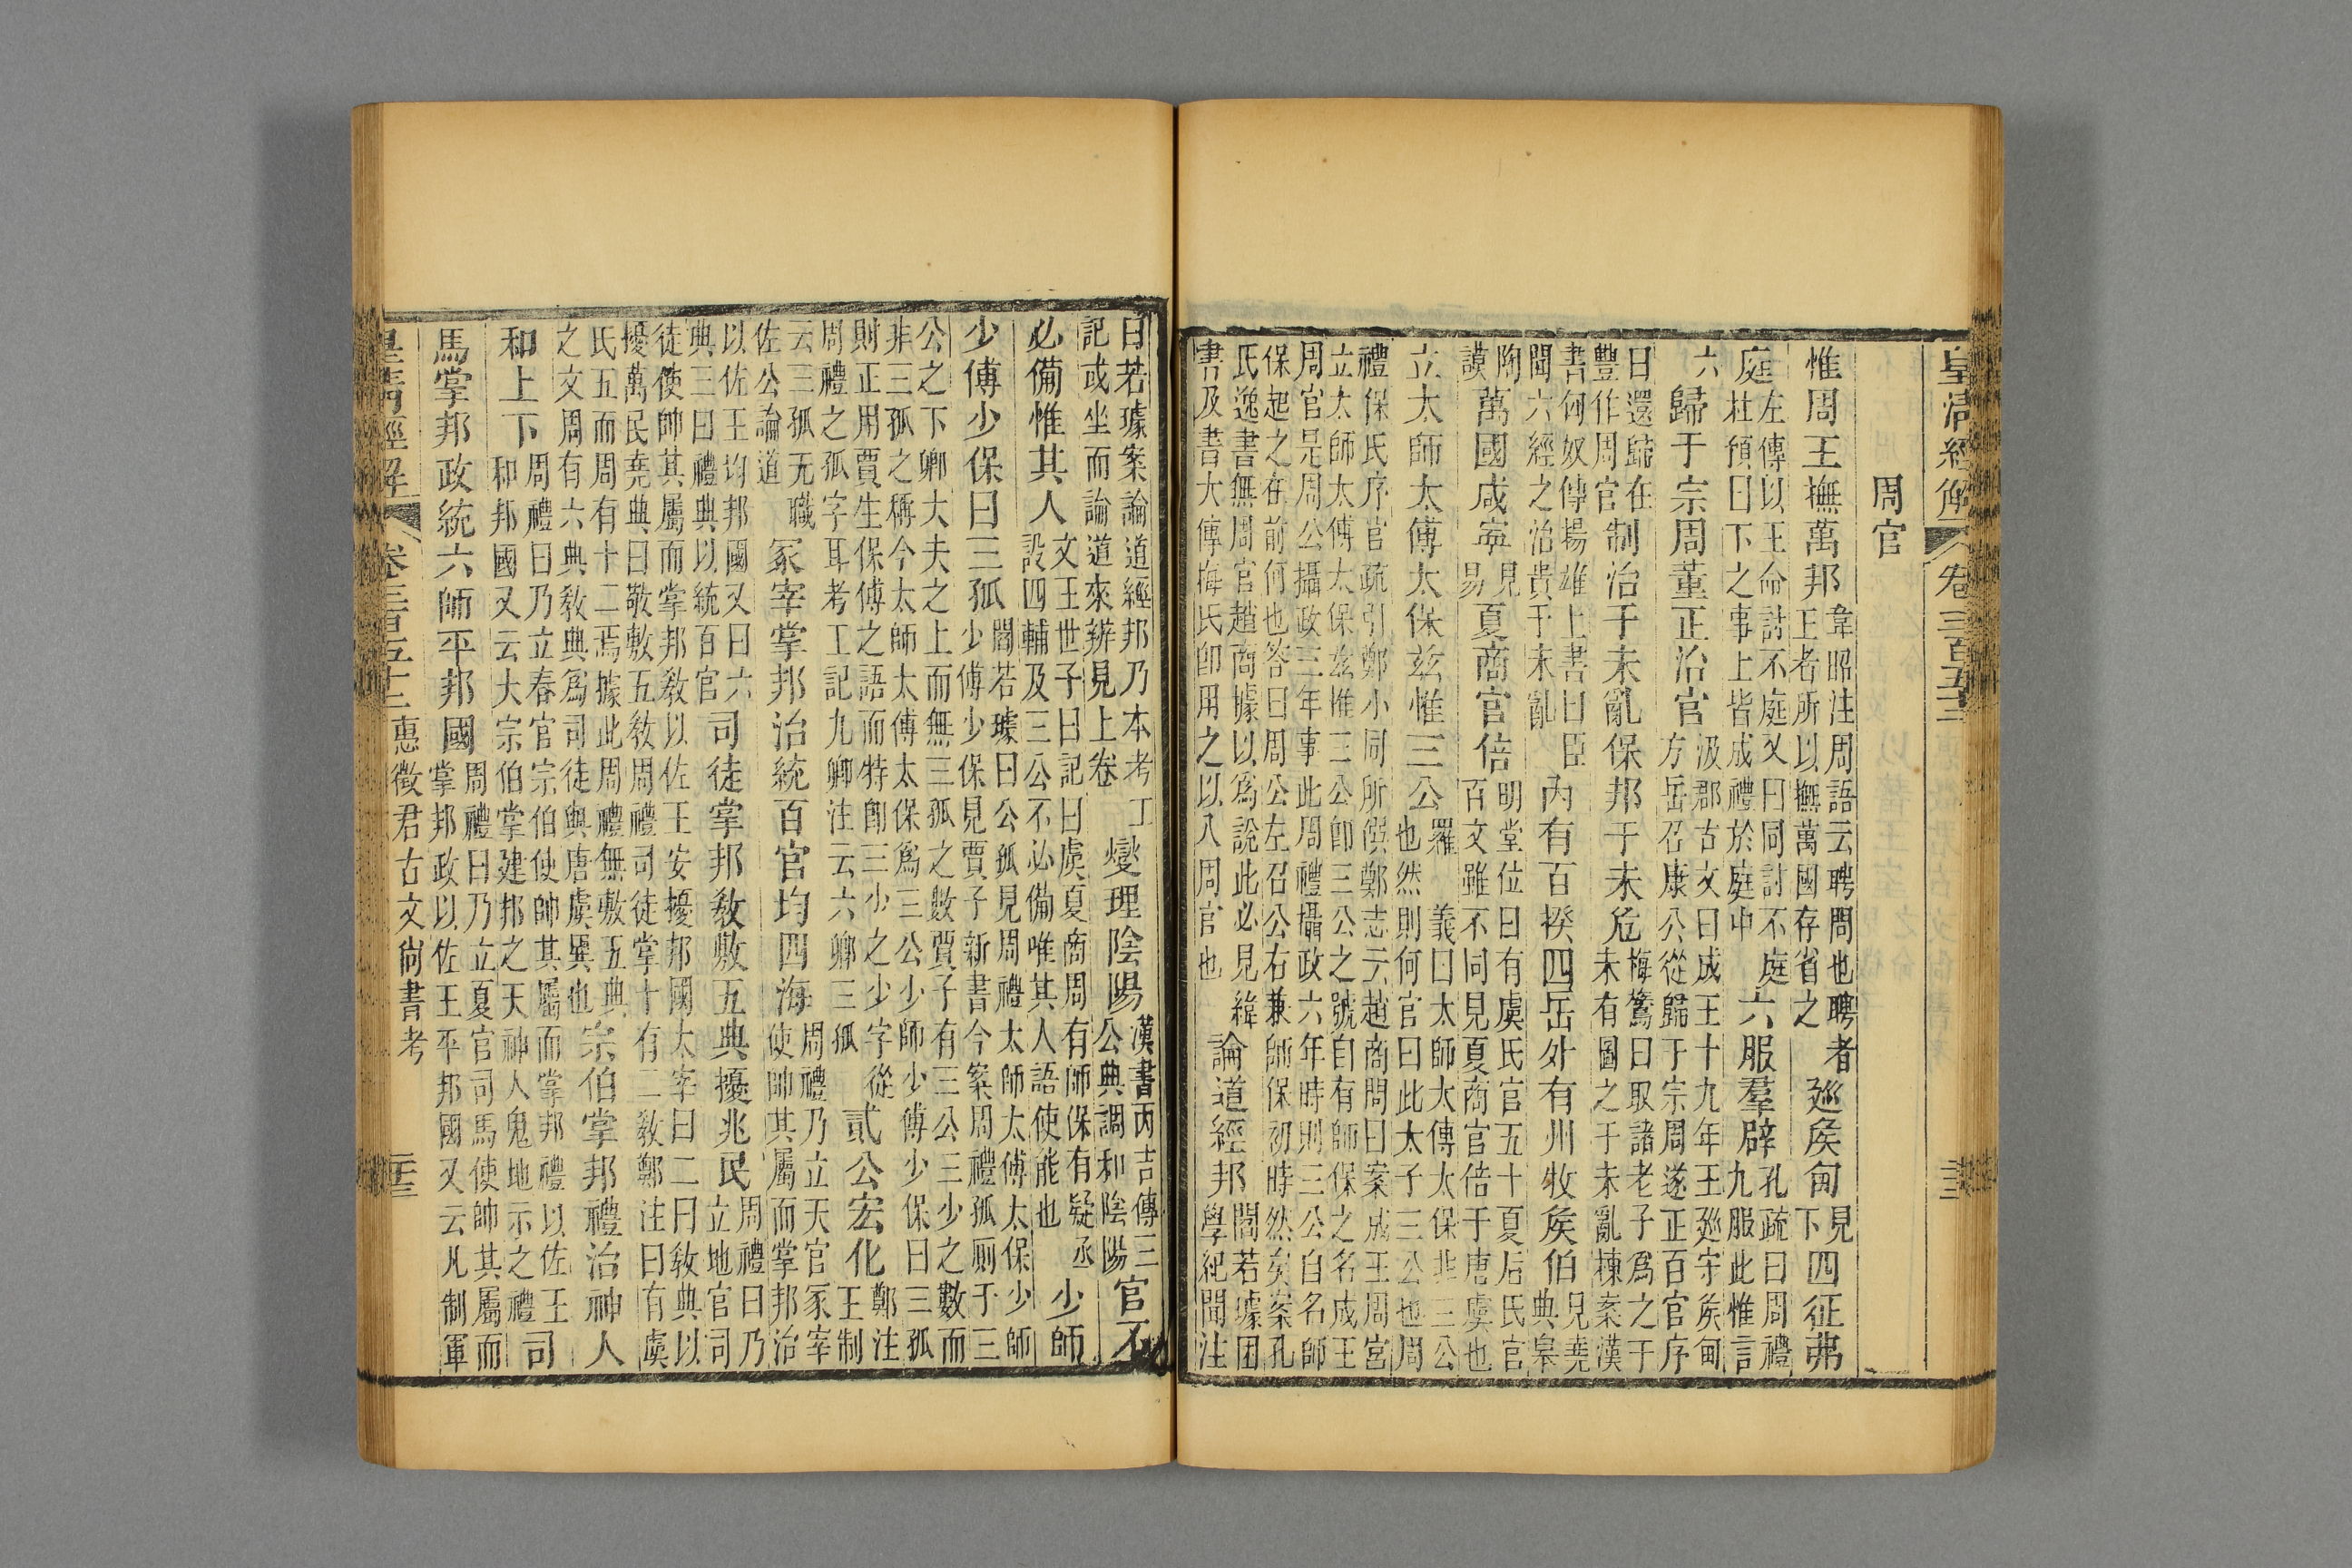 皇清經解 卷三百五十二
周官
惟周王撫萬邦
韋昭注周語云聘問也聘者
王者所以撫萬國存省之
廵矦甸
見
下
四征弗
庭
左傳以王命討不庭又曰同討不庭
杜預曰下之事上皆成禮於庭中
六服羣辟
孔疏曰周禮
九服此惟言
六
歸于宗周董正治官
汲郡古文曰成王十九年王廵守矦甸
方岳召康公從歸于宗周遂正百官序
曰還歸在
豐作周官
制治于未亂保邦于未危
梅鷟曰取諸老子爲之于
未有圖之于未亂棟案漢
書匈奴傳揚雄上書曰臣
聞六經之治貴于未亂
內有百揆四岳外有州牧矦伯
見堯
典皋
陶
謨
萬國咸寧
見
易
夏商官倍
明堂位曰有虞氏官五十夏后氏官
百文雖不同見夏商官倍于唐虞也
立太師太傅太保茲惟三公
羅 義曰太師太傅太保非三公
也然則何官曰此太子三公也周
禮保氏序官疏引鄭小同所僎鄭志云趙商問曰案成王周宮
立太師太傅太保茲惟三公卽三公之號自有師保之名成王
周官是周公攝政三年事此周禮攝政六年時則三公自名師
保起之在前何也答曰周公左召公右兼師保初時然矣案孔
氏逸書無周官趙商據以爲說此必見緯
書及書大傳梅氏卽用之以入周官也
論道經邦
閻若璩困
學紀聞注
曰若璩案論道經邦乃本考工
記或坐而論道來辨見上卷
燮理陰陽
漢書丙吉傳三
公典調和陰陽
官不
必備惟其人
文王世子曰記曰虞夏商周有師保有疑丞
設四輔及三公不必備唯其人語使能也
少師
少傅少保曰三孤
閻若璩曰公孤見周禮太師太傅太保少師
少傅少保見賈子新書今案周禮孤厠于三
公之下卿大夫之上而無三孤之數賈子有三公三少之數而
非三孤之稱今太師太傅太保爲三公少師少傅少保曰三孤
則正用賈生保傅之語而特卽三少之少字從
周禮之孤字耳考工記九卿注云六卿三孤
貳公宏化
鄭注
王制
云三孤无職
佐公論道
冢宰掌邦治統百官均四海
周禮乃立天官冢宰
使帥其屬而掌邦治
以佐王均邦國又曰六
典三曰禮典以統百官
司徒掌邦敎敷五典擾兆民
周禮曰乃
立地官司
徒使帥其屬而掌邦敎以佐王安擾邦國太宰曰二曰敎典以
擾萬民堯典曰敬敷五敎周禮司徒掌十有二敎鄭注曰有虞
氏五而周有十二焉據此周禮無敷五典
之文周有六典敎典爲司徒與唐虞異也
宗伯掌邦禮治神人
和上下
周禮曰乃立春官宗伯使帥其屬而掌邦禮以佐王
和邦國又云大宗伯掌建邦之天神人鬼地示之禮
司
馬掌邦政統六師平邦國
周禮曰乃立夏官司馬使帥其屬而
掌邦政以佐王平邦國又云凡制軍
皇清經解 卷三百五十二 惠徵君古文尙書考